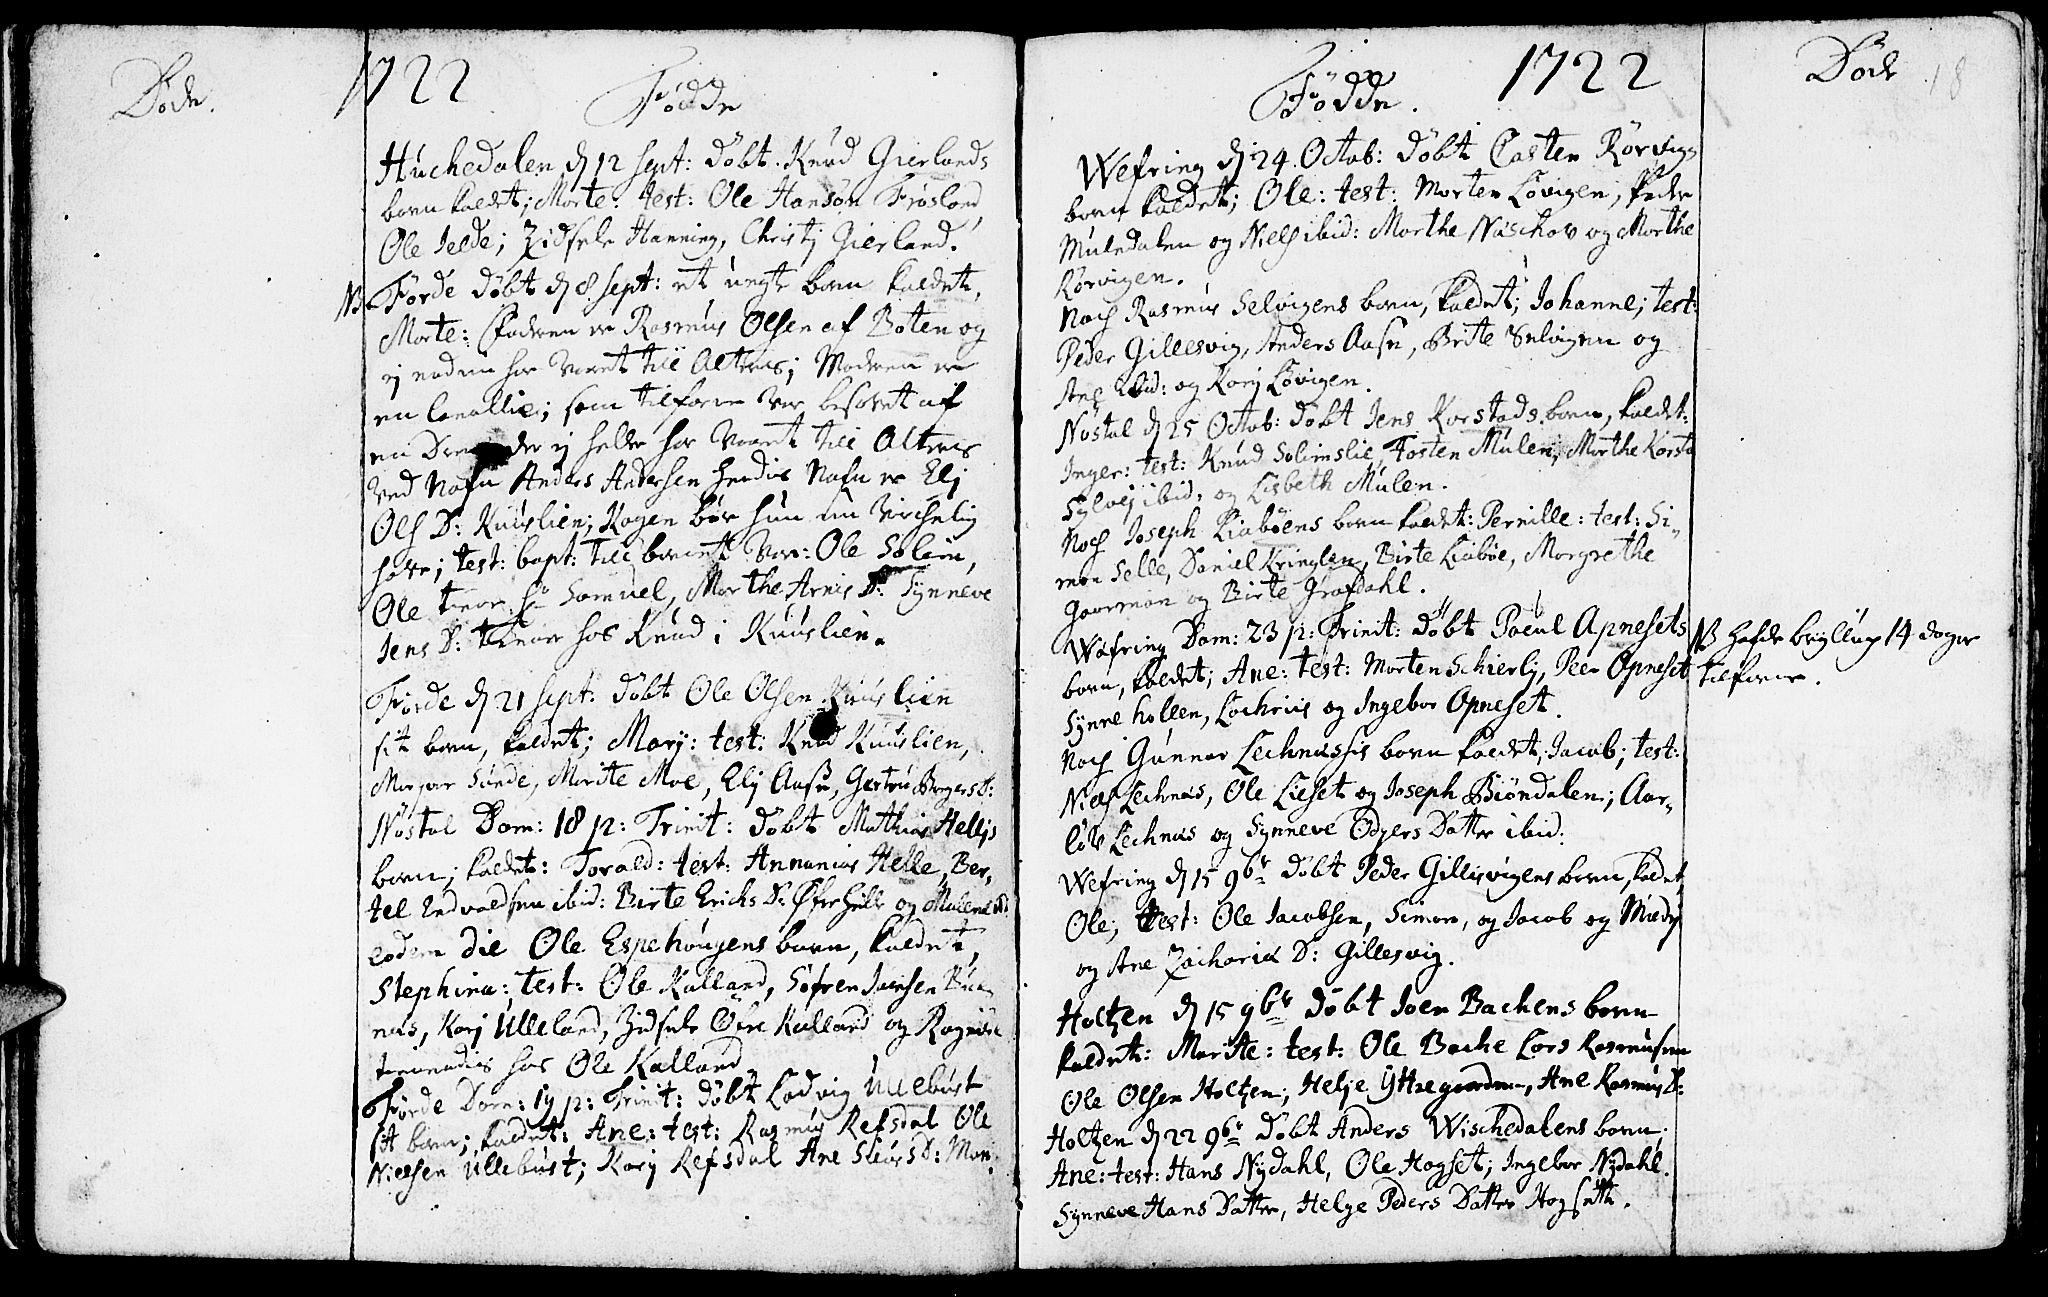 Døde.
1722
Födde
Huchedalen d 12 Sept: döbt Knud Gierlands
barn kaldet; Marte: test: Ole Hansøn Frøsland
Ole Jelde; Zidsele Hanning, Christj Gierland.
NB Førde döbt d 8 Sept: et uegte barn kaldet,
Marte: Faderen er Rasmus Olsen af Boten og
ej endnu har været till Alters; Moderen er
en Canallie; som tilforn var besovet af
en Dreng der ej heller har været till Alters
ved Nafn Anders Andersen hendis Nafn er Elj
Ols D: Kuuslien; Kagen bør hun nu virchelig
have; test: bapt: till barnet var: Ole Solem,
Ole tiener hr Samuel, Marthe Arnis D: Synneve
Jens D: tiener hos Knud i Kuuslien.
Førde d 21 Sept: döbt Ole Olsen Kuuslien
sit barn, kaldet; Marj: test: Knud Kuuslien,
Sunde, Marite Moe, Elj Aase, Gertru Børgers D:
Nøstal Dom: 18 p: Trinit: döbt Mathias Hellis
barn; kaldet: Torald: test: Annanias Helle, Ber,
tel Endvoldsen ibid: Birte Erichs D: Øfrehelle og Malene ibid:
eodem die Ole Espehougens barn, kaldet,
Stephina: test: Ole Kalland, Søfren Jansen Bru
næs, Karj Ulleland, Zidsele Øfre Kalland og Ragnilde
tienendis hos Ole Kalland
Førde Dom: 19 p: Trinit: döbt Ladvig Ullebust
sit barn; kaldet: Ane: test: Rasmus Refsdal Ole
Nielsen Ullebust; Karj Refsdal Ane Siurs D: Mo
Födde.
1722
Døde
18
Wefring d 24 Octob: döbt Casten Rørvigs
barn kaldet; Ole: test: Morten Løvigen, Peder
Muledalen og Niels ibid: Marthe Naschov og Marthe
Rørvigen.
Noch Rasmus Selvigens barn, kaldet; Johanne; test:
Peder Gillesvig, Anders Aasen, Brite Selvigen og
Ane ibid: og Karj Løvigen.
Nøstal d 25 Octob: döbt Jens Korstads barn, kaldet:
Inger: test: Knud Solemslie, Tosten Mulen, Marthe Korsta
Sylvej ibid, og Lisbeth Mulen.
Noch Joseph Liabøens barn kaldet: Pernille: test: Si-
mon Selle, Daniel Kringlen, Birte Liabøe, Margrethe
Gaarman og Birte Grafdahl.
Wæfring Dom: 23 p: Trinit: döbt Paeul Apnesets
barn, kaldet; Ane: test: Morten Schierlj, Peer Opneset
Synne hollen, Lochriis og Ingebor Opneset.
NB hafde bryllup 14 dager
tilforn.
Noch Gunnar Lechnæssis barn kaldet, Jacob; test:
Niels Lechnæs, Ole Lieset og Joseph Biöndalen; Aar-
löv Lechnæs og Synneve Odgers Datter ibid:
Wefring d 15 9br döbt Peder Gillisvigens barn, kaldet,
Ole; test: Ole Jacobsen, Simon, og Jacob og Mædj
og Ane Zacharia D: Gillesvig.
Holtzen d 15 9br döbt Joen Bachens barn
kaldet: Marite: test: Ole Bache Lars Rasmusen
Ole Olsen Holtzen; Helje Yttregaarden, Ane Rasmus D:
Holtzen d 22 9br döbt Anders Wischedalens barn
Ane: test: Hans Nydahl, Ole Hogset; Ingebor Nydahl.
Synneve Hans Datter, Helge Peders Datter Hogsette.